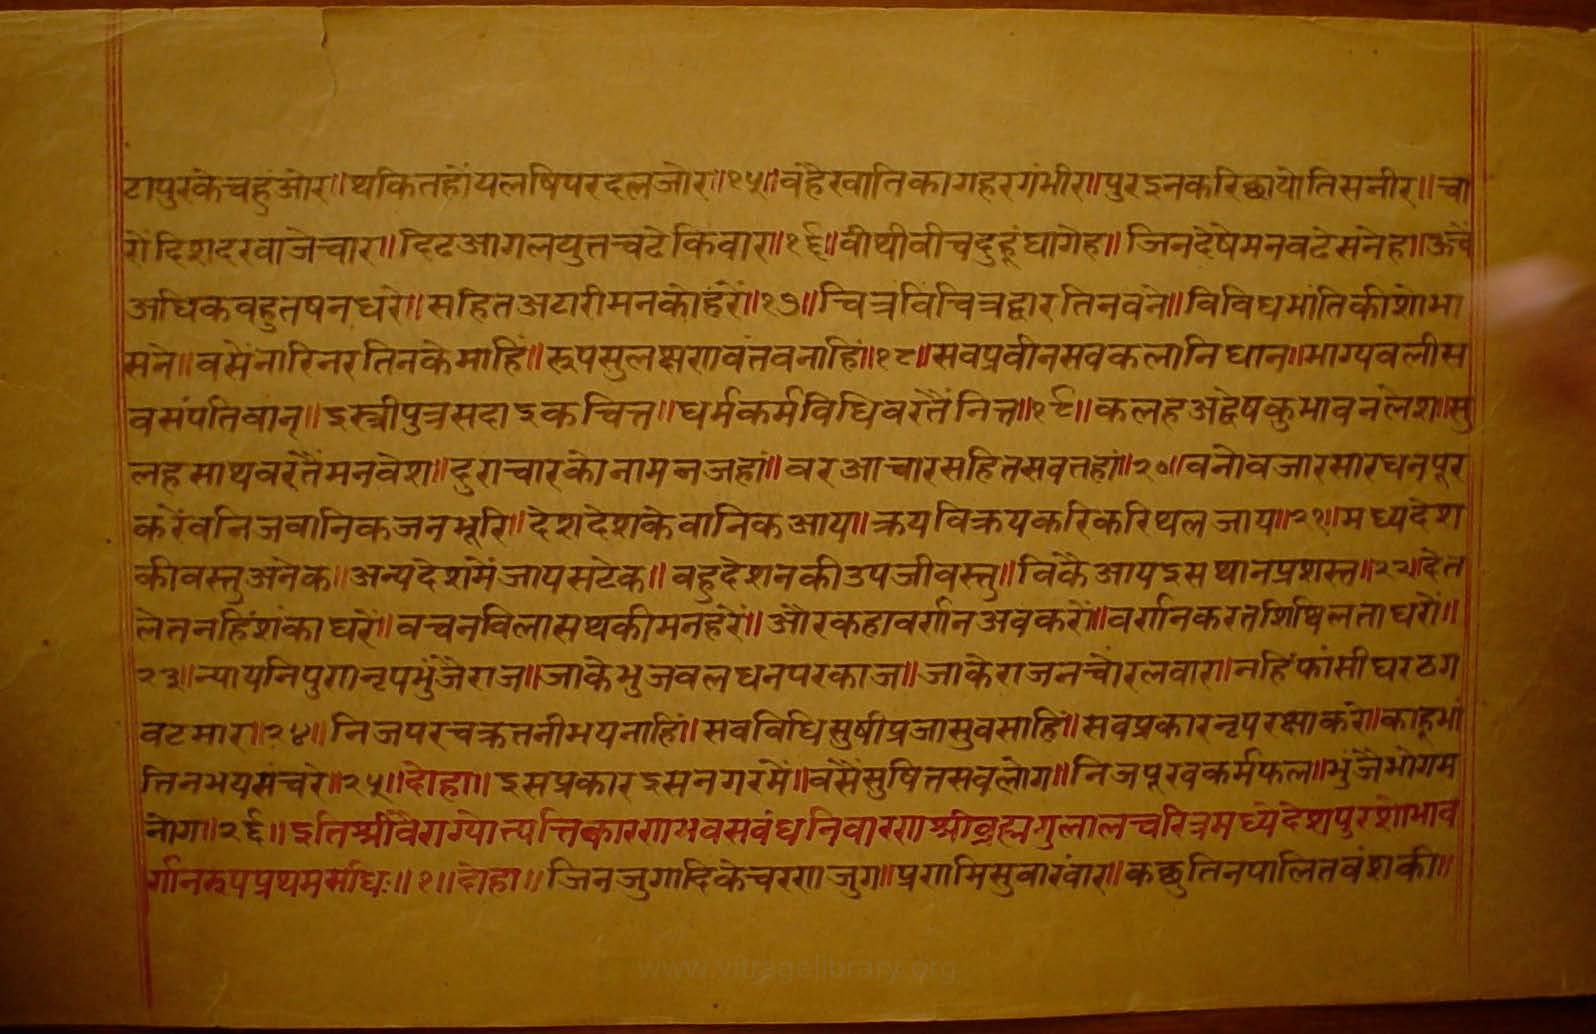 टापुरकेचहुंओर॥थकितहोंयलषिपरदलजोर॥१५॥वंहैखातिकागहरगंभीर॥पुरइनकरिछायोतिसनीर॥चा
रोंदिशदरवाजेचार॥दिढआगलयुत्तचटेकिवार॥१६॥वीथीवीचदुहूंघागेह॥जिनदेषेमनवटेसनेह॥ऊंचे
अधिकवहुतषनधरे॥सहितअटारीमनकोहरें॥१७॥चित्रविचित्रद्वारतिनवने॥विविधभांतिकीशोभा
सने॥वसेंनारिनरतिनकेमाहिं॥रूपसुलक्षणवंतवनाहिं॥१८॥सवप्रवीनसवकलानिधान॥भाग्यवलीस
वसंपतिवान्॥इस्त्रीपुत्रसदाइकचित्त॥धर्मकर्मविधिवरतैंनित्त॥१९॥कलहअद्वेषकुभावनलेश॥सु
लहसाथवरतैंमनवेश॥दुराचारकोनामनजहां॥वरआचारसहितसवतहां॥२०॥वनोवजारसारधनपूर
करेंवनिजवानिकजनभूरि॥देशदेशकेवानिकआय॥क्रयविक्रयकरिकरिथलजाय॥२१॥मध्यदेश
कीवस्तुअनेक॥अन्यदेशमेंजायसटेक॥वहुदेशनकीउपजीवस्तु॥विकैआयइसथानप्रशस्त॥२२॥देत
लेतनहिंशंकाधरें॥वचनविलासथकीमनहरें॥औरकहावर्णनअवकरों॥वर्णनकरतशिथिलताधरों॥
२३॥न्यायनिपुणनृपभुंजैराज॥जाकेभुजवलधनपरकाज॥जाकेराजनचोरलवार॥नहिंफांसीघरठग
वटमार॥२४॥निजपरचक्रतनीभयनाहिं॥सवविधिसुषीप्रजासुवसाहिं॥सवप्रकारनृपरक्षाकरे॥काहूभां
तिनभयसंचरे॥२५॥दोहा॥इसप्रकारइसनगरमें॥वसैंसुषितसवलोग॥निजपूरवकर्मफल॥भुंजैभोगम
नोग॥२६॥इतिश्रीवैराग्योत्पत्तिकारणभवसवंधनिवारणश्रीव्रह्मगुलालचरित्रमध्येदेशपुरशोभाव
र्णनरूपप्रथमसंधिः॥१॥दोहा॥जिनजुगादिकेचरणजुग॥प्रणमिसुवारंवार॥कछुतिनपालितवंशकी॥
www.vitragelibrary.org